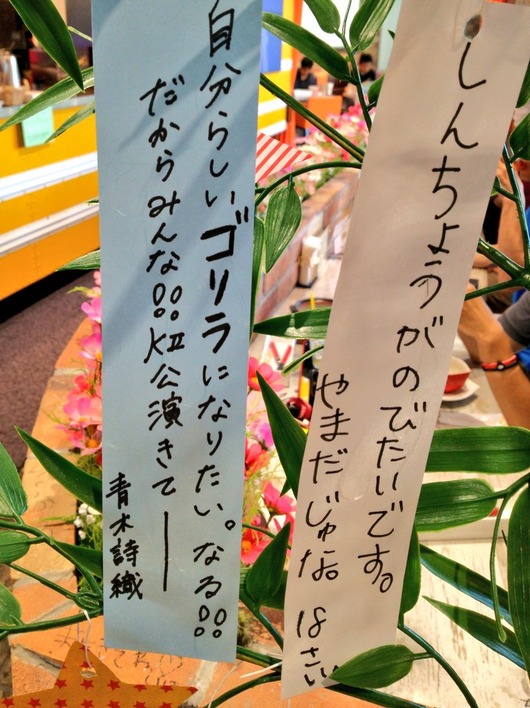 しんちょうがのびたいです。
やまだじゅな。18さい
自分らしいゴリラになりたい。なる!!
だからみんな!!KⅡ公演きてー
青木詩織